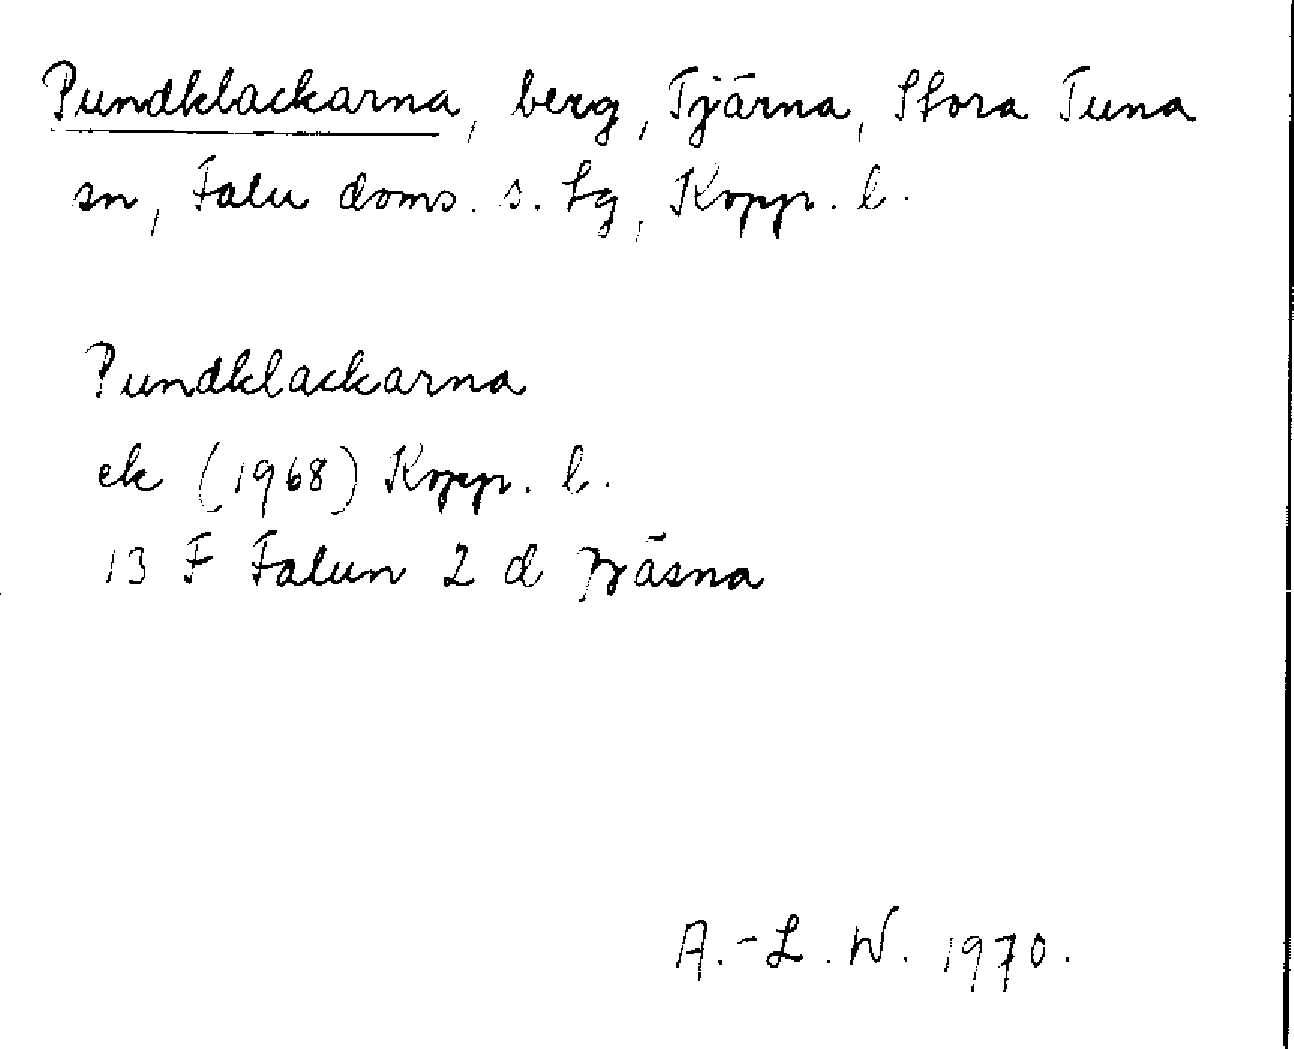 Pundklackarna, berg, Tjärna, Stora Tuna
sn, Falu doms. s. tg, Kopp. l.
Pundklackarna
ek (1968) Kopp. l.
13 F Falun 2 d
A.-L. W. 1970.